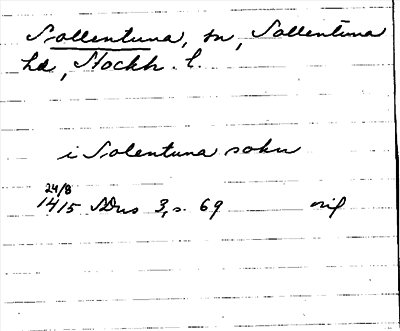 Sollentuna, sn, Sollentuna
hd, Stockh. l.
i Solentuna sokn
24/8
1415 SDns 3, s. 69 orig